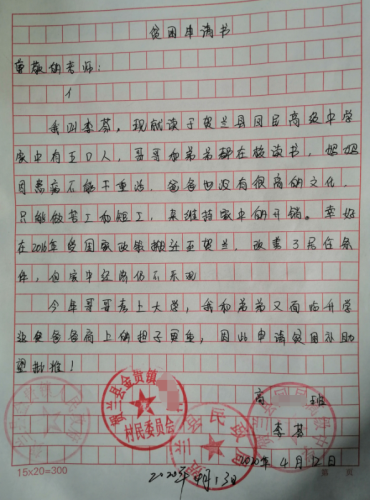 贫困申请书
尊敬的老师：
我叫李芬，现就读于贺兰县回民高级中学
家中有五口人，哥哥和弟弟都在校读书，妈妈
因患病不能干重活，爸爸也没有很高的文化，
只能做苦工和短工，来维持家中的开销。幸好
在2016年受国家政策搬迁至贺兰，改善了居住条
件，但家中经济仍不乐观
今年哥哥考上大学，我和弟弟又面临升学
这使爸爸肩上的担子更重，因此申请贫困补助
望批准！
高 班
李芬
2020年4月12日
贺兰县金贵镇
村民委员会
2020年4月13日
15×20=300
第 页